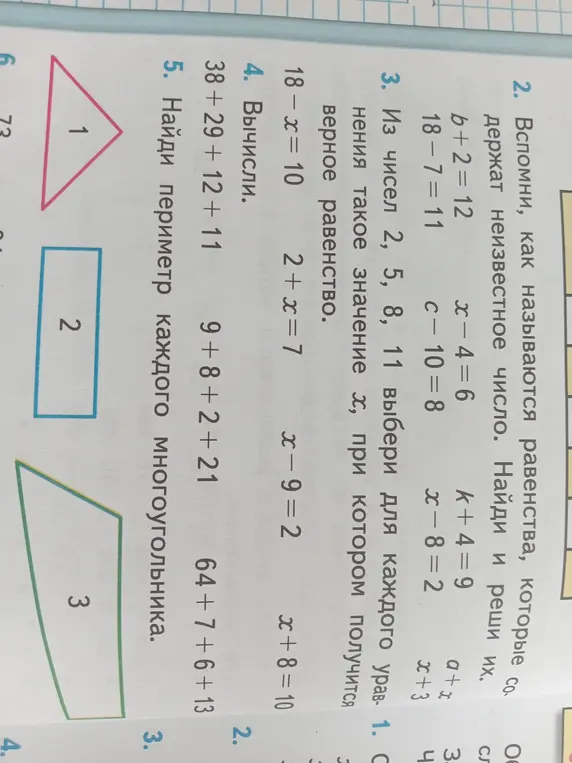 2. Вспомни, как называются равенства, которые со-
держат неизвестное число. Найди и реши их.
b + 2 = 12 x − 4 = 6 k + 4 = 9 a + x
18 − 7 = 11 c − 10 = 8 x − 8 = 2 x + 3
3. Из чисел 2, 5, 8, 11 выбери для каждого урав-
нения такое значение x, при котором получится
верное равенство.
18 − x = 10 2 + x = 7 x − 9 = 2 x + 8 = 10
4. Вычисли.
38 + 29 + 12 + 11 9 + 8 + 2 + 21 64 + 7 + 6 + 13
5. Найди периметр каждого многоугольника.
1 2 3
6 73
1.
2.
3.
4.